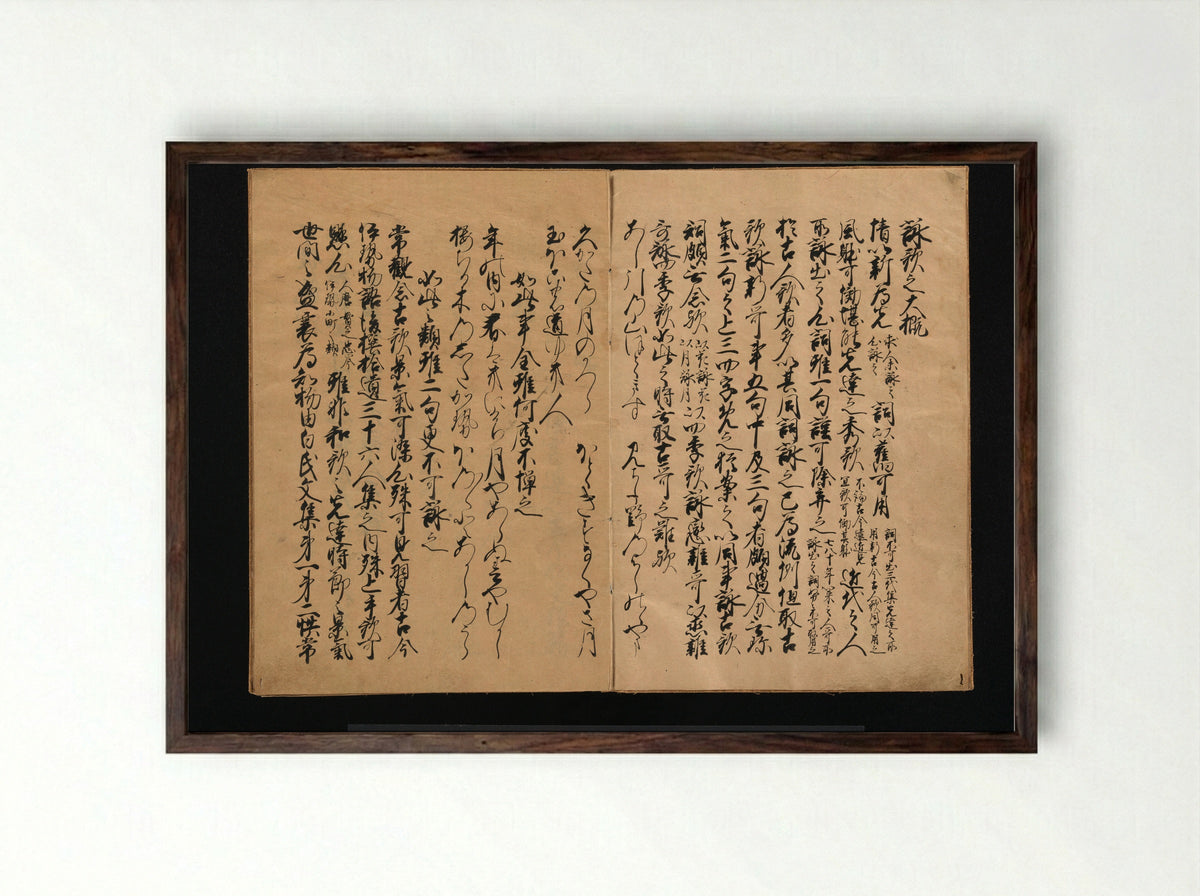 詠歌之大概
情以新為先 求人未詠之心詠之 詞以舊可用 詞不可出三代集先達之所用新古今古人歌同可用之
風躰可効堪能先達之秀歌 不論古今遠近見宜歌可効其躰 近代之人
所詠出之心詞雖一句謹可除弃之 七八十年以来之人哥所詠出之詞努々不可取用之
於古人歌者多以其同詞詠之已為流例但取古
歌詠新哥事五句中及三句者頗過分無珎
氣二句之上三四字免之猶案之以同事詠古歌
詞頗無念歟 以花詠花以月詠月 以四季歌詠戀雜哥以恋雜
哥詠四季歌如此之時無取古哥之難歟
あし引の山ほとゝきす みよし野のよしのゝやま
久かたの月のかつら ほとゝきすなくやさ月
玉ほこの道ゆき人
如此事全雖何度不憚之
年の内に春はきにけり 月やあらぬ春やむかし
桜ちる木のしたかせ ほの〱とあかしのうら
如此之類雖二句更不可詠之
常觀念古歌景氣可染心殊可見習者古今
伊勢物語後撰拾遺三十六人集之内殊上手歌可
懸心 人麿貫之忠岑伊勢小町之類 雖非和歌之先達時節之景氣
世間之盛衰為知物由白氏文集第一第二帙常